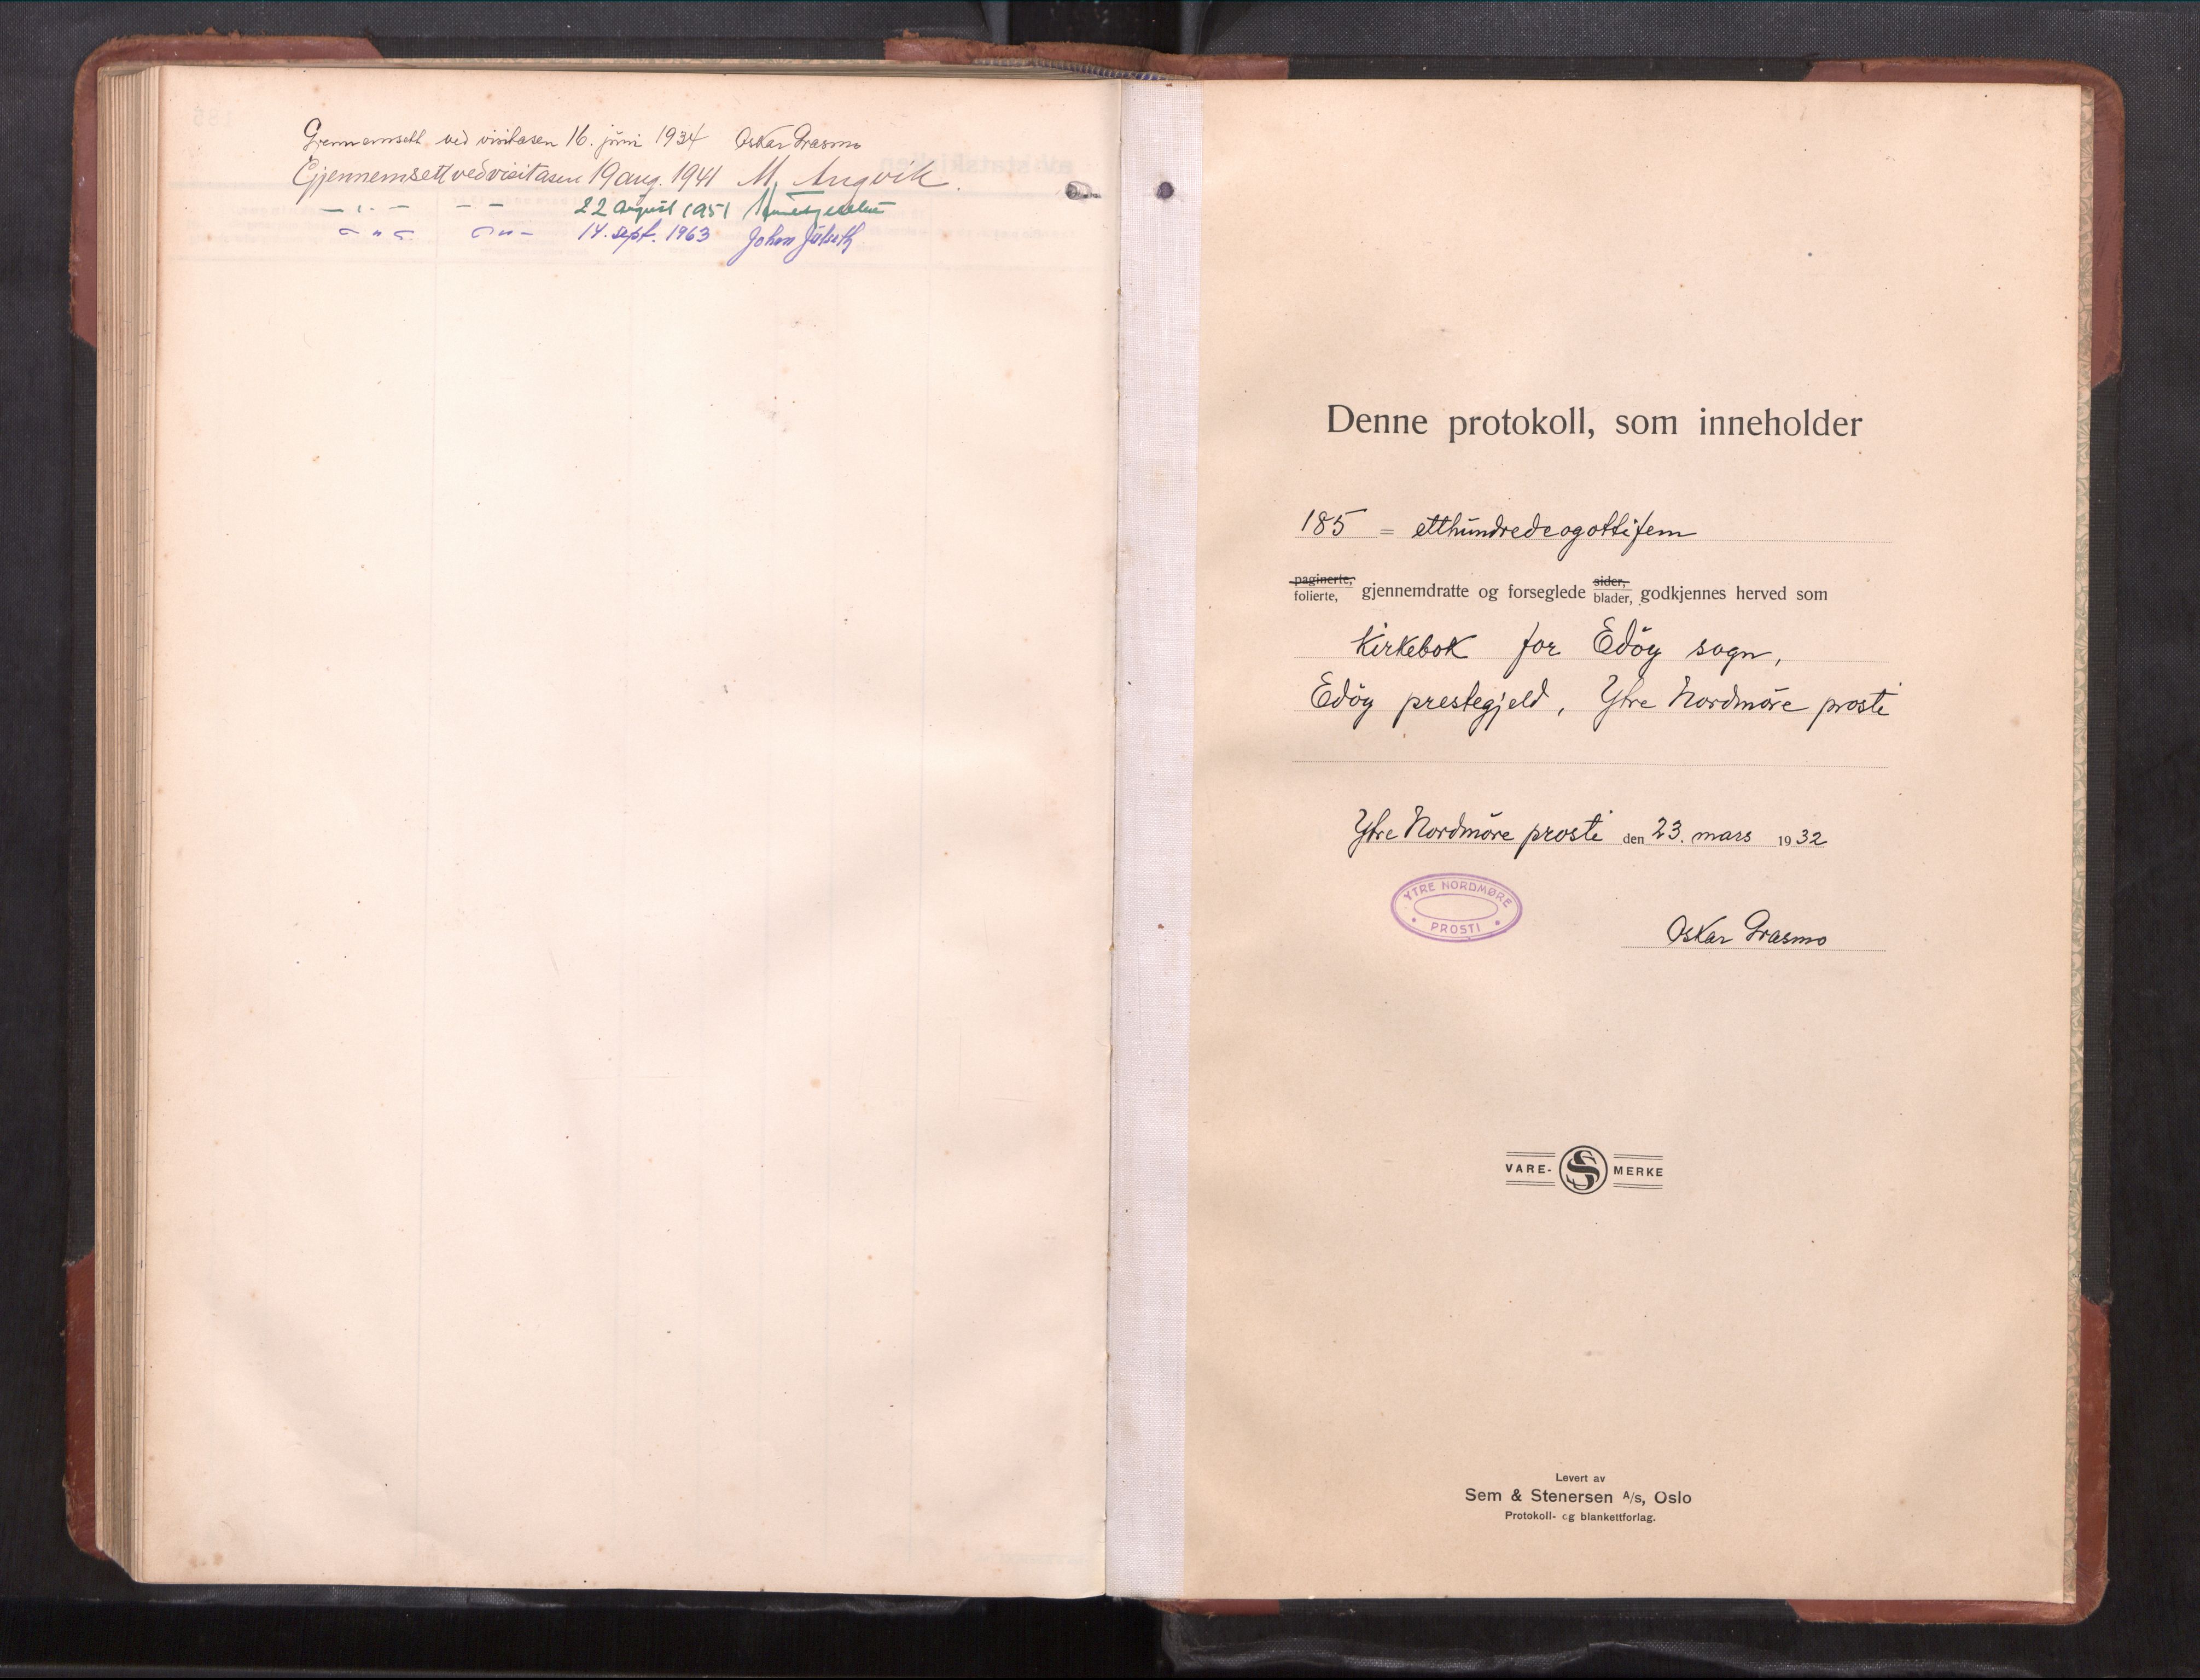 Gjennemsett ved visitasen 16. juni 1934 Oskar Grasmo
Gjennemsett ved visitasen 19 aug. 1941 M. Angvik.
— " — — — 22 august 1951
— " — — " — 14. sept. 1963 Johan Julseth
Denne protokoll, som inneholder
185 = etthundredeogottifem
paginerte, sider,
folierte, gjennemdratte og forseglede blader, godkjennes herved som
kirkebok for Edöy sogn,
Edöy prestegjeld, Ytre Nordmöre prosti
Ytre Nordmöre prosti den 23. mars 1932
YTRE NORDMØRE
PROSTI
Oskar Grasmo
VARE- S MERKE
Levert av
Sem & Stenersen A/s, Oslo
Protokoll- og blankettforlag.